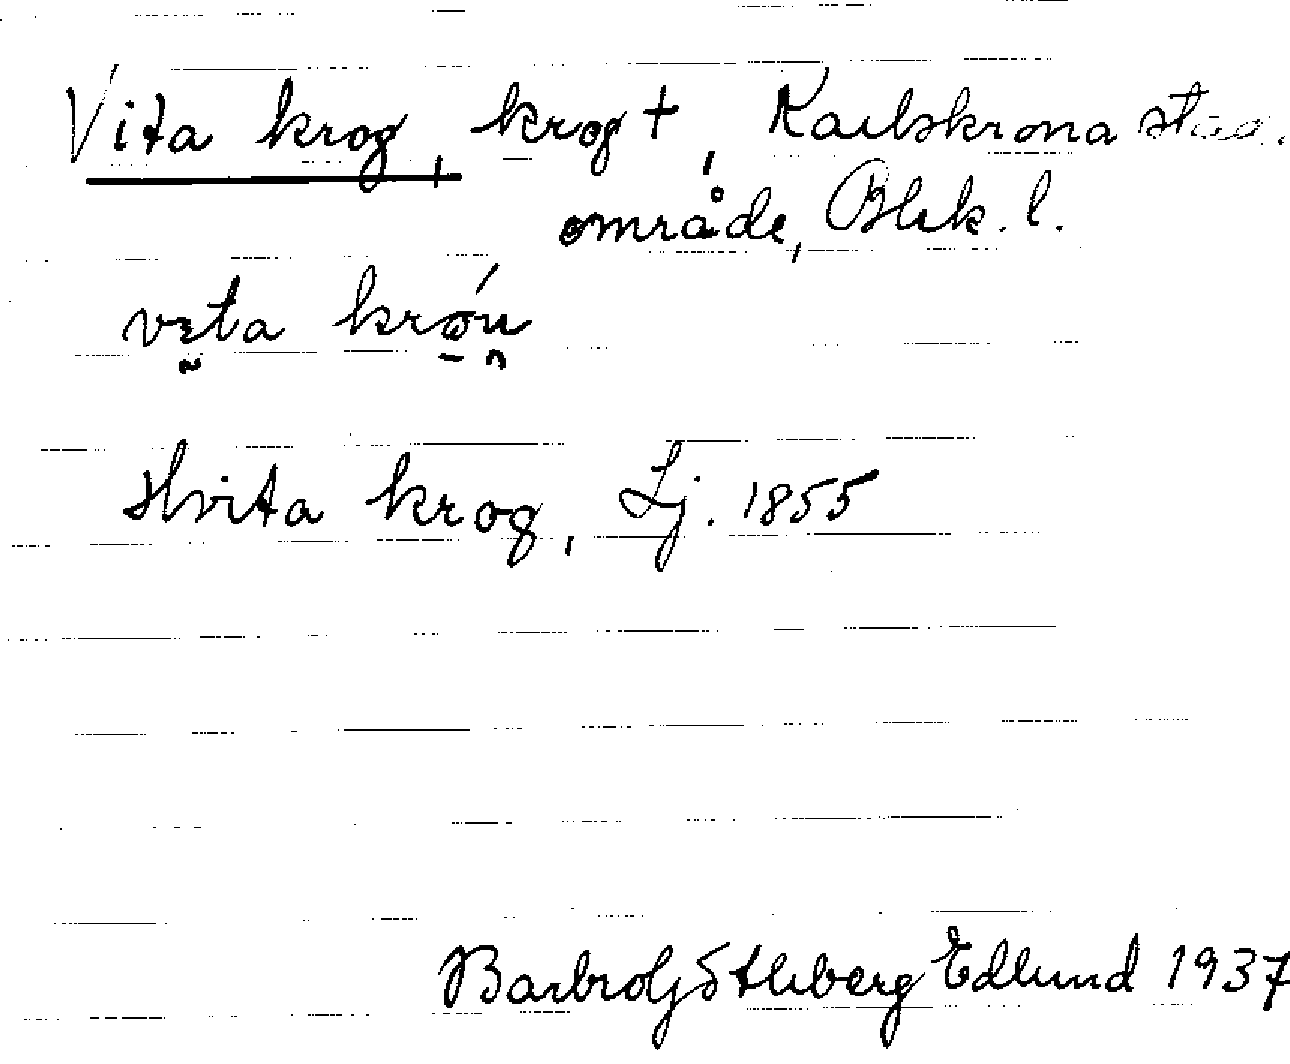 Vita krog, krog †, Karlskrona stads
område, Blek. l.
veta krou
Hvita krog, Lj. 1855
Barbro Götleberg Edlund 1937